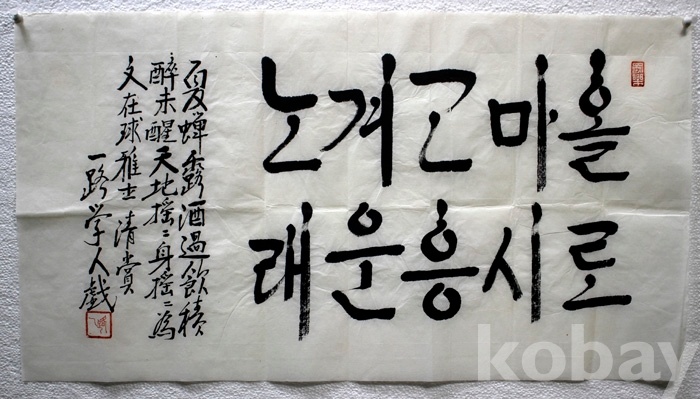 홀로
마시
고흥
겨운
노래
夏蟬露酒過飮積
醉未醒天地搖〻身搖〻爲
文在球雅士 清賞
一路学人戱
kobay